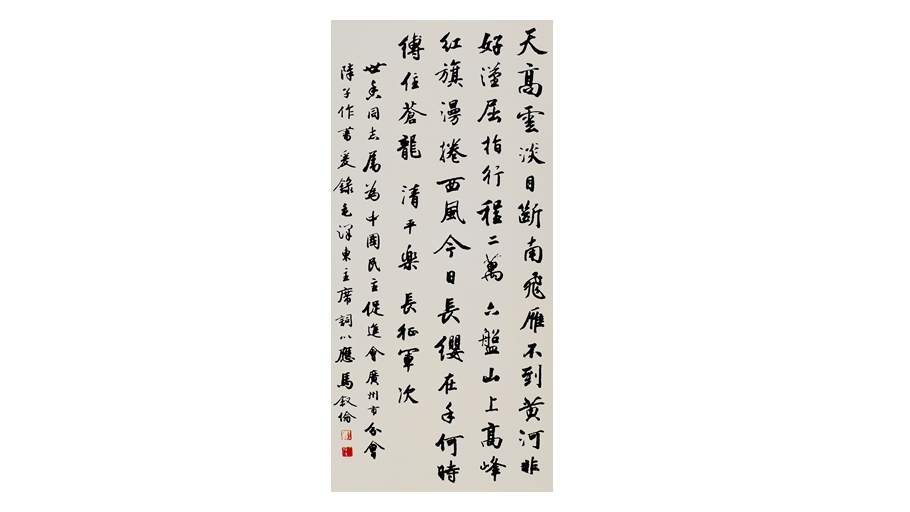 天高雲淡目斷南飛雁不到黄河非
好漢屈指行程二萬六盤山上高峰
紅旗漫捲西風今日長纓在手何時
縛住蒼龍 清平樂 長征軍次
世同志属為中國民主促進會廣州市分會
陳作書爰錄毛澤東主席詞以應馬叙倫